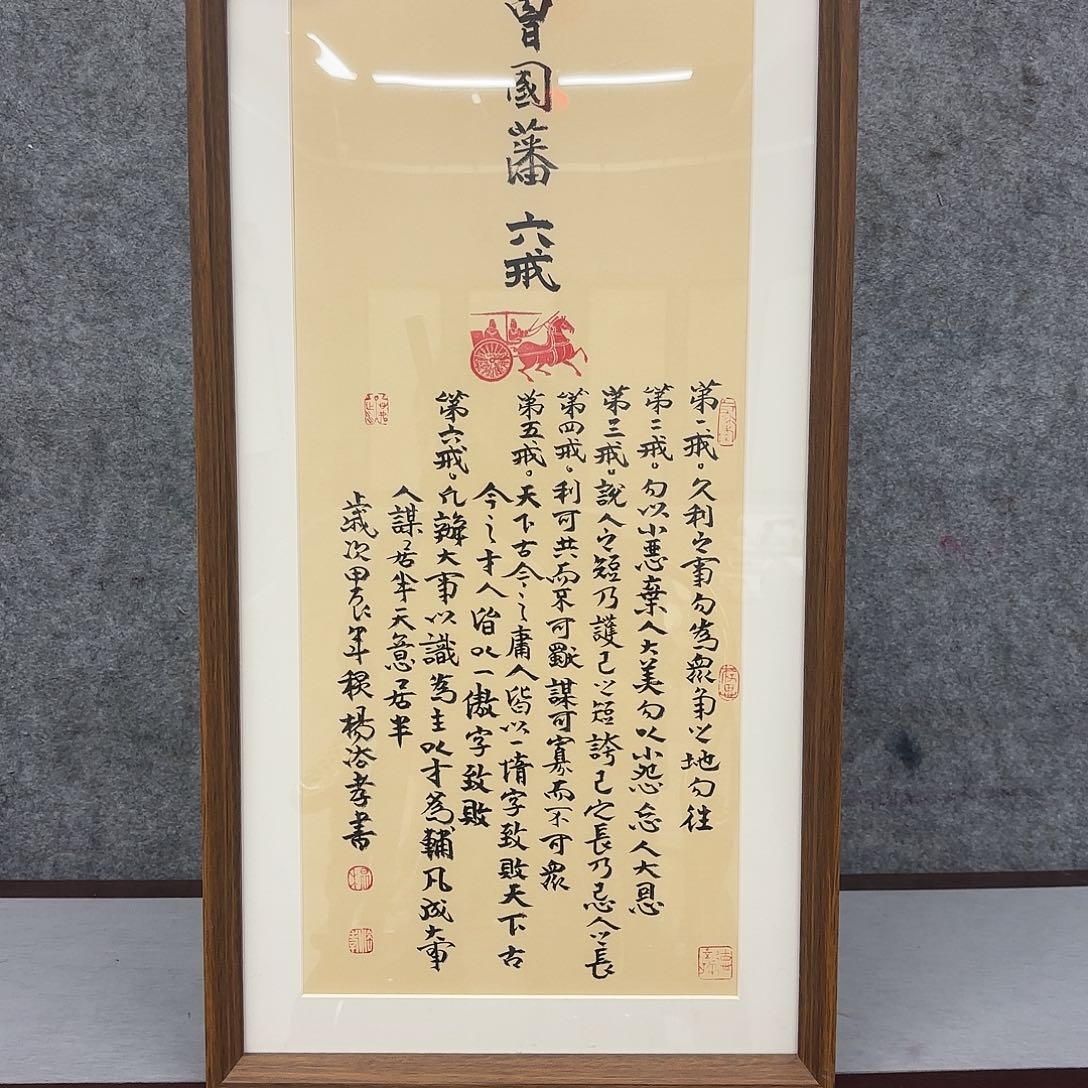 曾國藩 六戒
第一戒。久利之事勿為衆爭之地勿往
第二戒。勿以小惡棄人大美勿以小怨忘人大恩
第三戒。說人之短乃護己之短誇己之長乃忌人之長
第四戒。利可共而不可獨謀可寡而不可衆
第五戒。天下古今之庸人皆以一惰字致敗天下古
今之才人皆以一傲字致敗
第六戒。凡辦大事以識為主以才為輔凡成大事
人謀居半天意居半
歲次甲辰年 楊 孝書